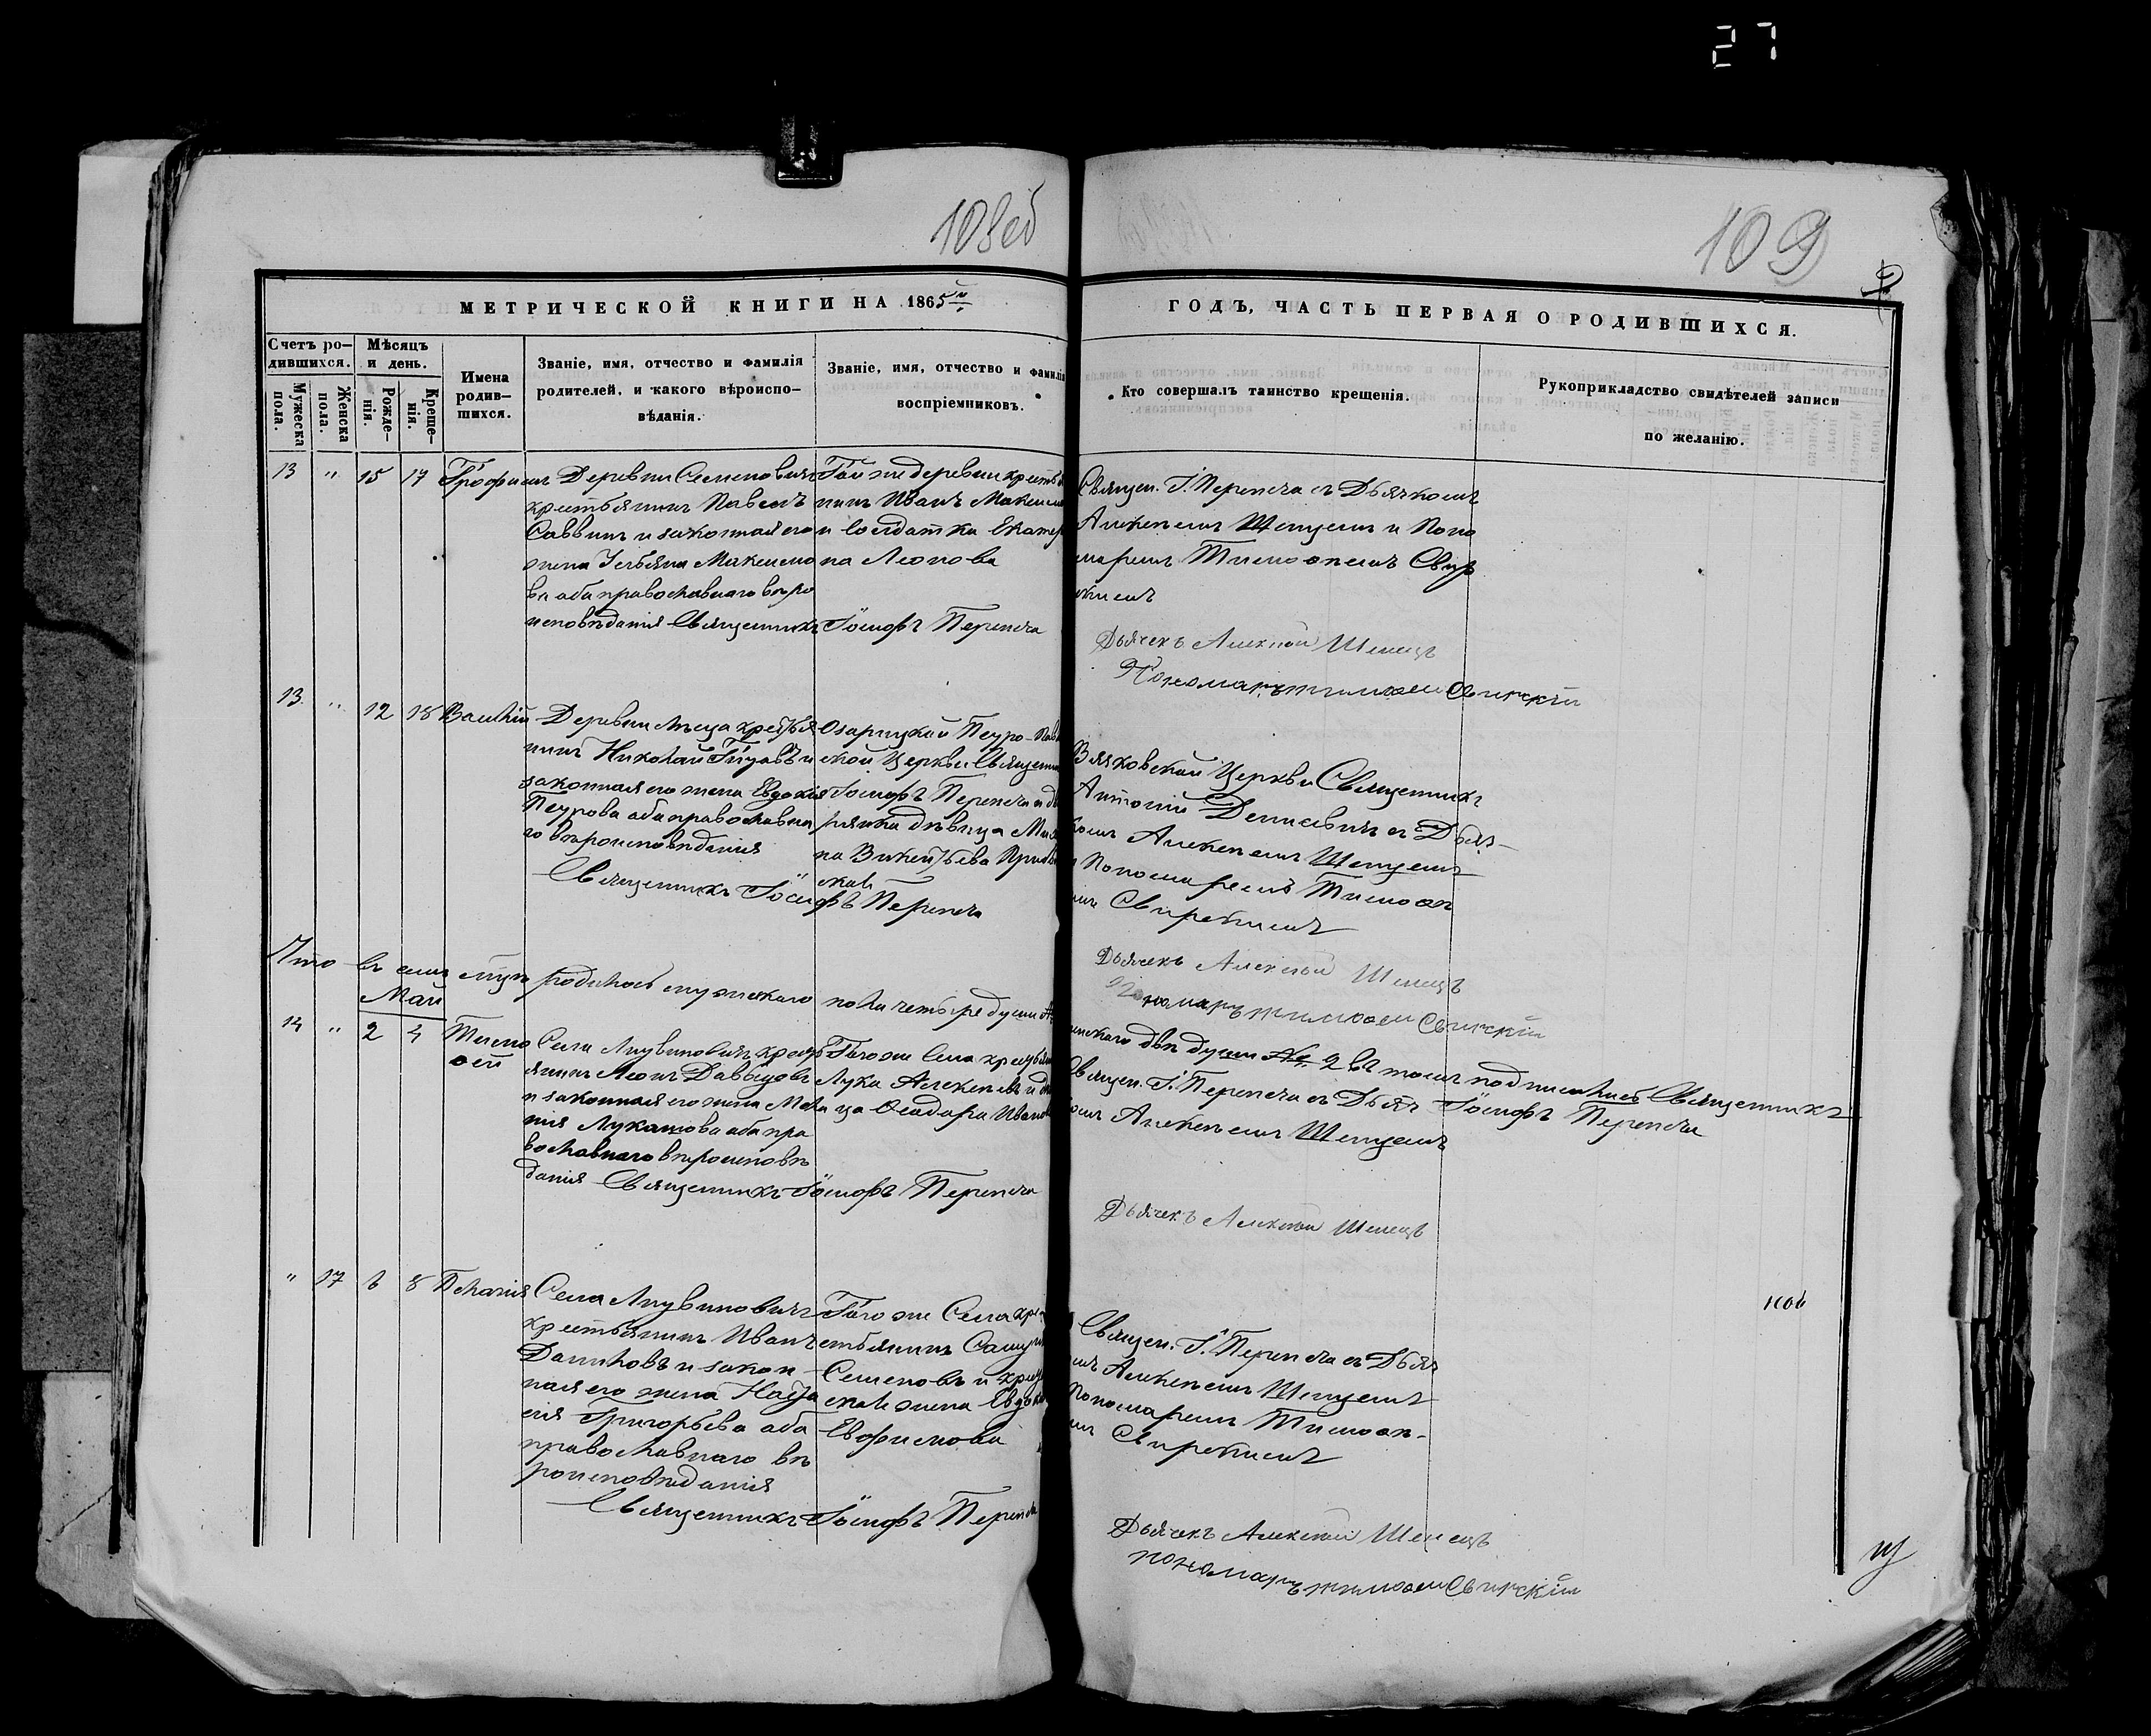 27
108об
109
МЕТРИЧЕСКОЙ КНИГИ НА 1865й
ГОДЪ, ЧАСТЬ ПЕРВАЯ О РОДИВШИХСЯ.
Счетъ ро-
дившихся.
Мужеска
пола.
Женска
пола.
Мѣсяцъ
и день.
Рожде-
нія.
Креще-
нія.
Имена
родив-
шихся.
Званіе, имя, отчество и фамилія
родителей, и какого вѣроиспо-
вѣданія.
Званіе, имя, отчество и фамилія
воспріемниковъ.
Кто совершалъ таинство крещенія.
Рукоприкладство свидѣтелей записи
по желанію.
13 " 15 17 Трофимъ
Деревни Семеновичъ
крестьянинъ Павелъ
Саввинъ и законная его
жена Ульяна Максимо
ва оба православнаго вѣро
исповѣданія Священникъ Іосифъ Перепеча
Той же деревни крестья
нинъ Иванъ Максим
и солдатка Екатер
на Леонова
Священ. І. Перепеча съ Дьячкомъ
Алексѣемъ Шепцемъ и Поно
маремъ Тимоѳеемъ Свир
скимъ
Дьячекъ Алексѣй Шепецъ
Пономарь Тимоѳей Свирскій
13 " 12 18 Василій
Деревни крестья
нинъ Николай Титовъ и
законная его жена Евдокія
Петрова оба православна
го вѣроисповѣданія
Священникъ Іосифъ Перепеча
Озарицкой Петро-Пав
ской Церкви Священни
Іосифъ Перепеча и дв
рянка дѣвица
на Викентьева
ская
Вязковской Церкви Священникъ
Антоній Денисевичъ съ Дьяч-
комъ Алексѣемъ Шепцемъ
и Пономаремъ Тимоѳе
мъ Свирскимъ
Дьячекъ Алексѣй Шепецъ
Пономарь Тимоѳей Свирскій
Что въ семъ родилось мужескаго пола четыре души
женскаго двѣ души № 2 въ томъ подписались Священникъ
Іосифъ Перепеча
Май
14 " 2 4 Тимо
ѳей
Села Литвиновичъ крестъ
янинъ Леонъ Давыдовъ
и законная его жена Мела
нія Лукашова оба пра
вославнаго вѣроисповѣ
данія Священникъ Іосифъ Перепеча
Того же Села крестьян
Лука Алексѣевъ и дѣ
ца Ѳеодора Иванов
Священ. І. Перепеча съ Дьяч
комъ Алексѣемъ Шепцемъ
Дьячекъ Алексѣй Шепецъ
" 17 6 8 Пелагія
Села Литвиновичъ
крестьянинъ Иванъ
Даниловъ и закон-
ная его жена Наста
сія Григорьева оба
православнаго вѣ
роисповѣданія
Священникъ Іосифъ Перепеча
Того же Села кре
стьянинъ
Семеновъ и крест
ская жена Евдок
Евфимова
Священ. І. Перепеча съ Дьяч
мъ Алексѣемъ Шепцемъ
Пономаремъ Тимоѳе-
мъ Свирскимъ
Дьячекъ Алексѣй Шепецъ
пономарь Тимоѳей Свирскій